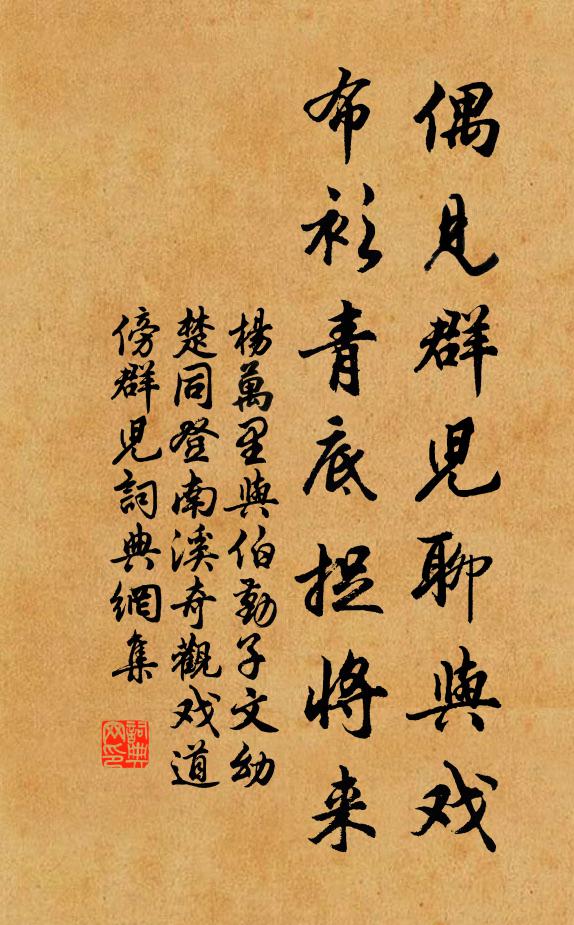 偶见群児聊與戏
布衫青底捉将来
楊萬里與伯勤子文幼
楚同登南溪奇觀戏道
傍群児詞典網集
詞典網印